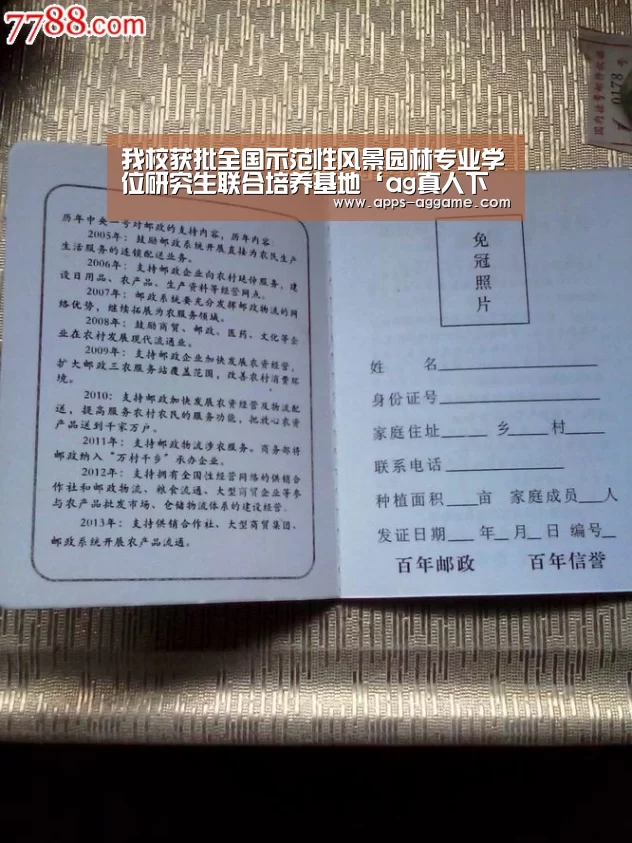 7788.com
国内挂号邮件收据
0178 号
我校获批全国示范性风景园林专业学
位研究生联合培养基地‘ag真人下
www.apps-aggame.com
历年中央一号对邮政的支持内容，历年内容：
2005年：鼓励邮政系统开展直接为农民生产
生活服务的连锁配送业务。
2006年：支持邮政企业向农村延伸服务，建
设日用品、农产品、生产资料等经营网点。
2007年：邮政系统要充分发挥邮政物流的网
络优势，继续拓展为农服务领域。
2008年：鼓励商贸、邮政、医药、文化等企
业在农村发展现代流通业。
2009年：支持邮政企业加快发展农资经营，
扩大邮政三农服务站覆盖范围，改善农村消费环
境。
2010：支持邮政加快发展农资经营及物流配
送，提高服务农村农民的服务功能，把放心农资
产品送到千家万户。
2011年：支持邮政物流涉农服务。商务部将
邮政纳入“万村千乡”承办企业。
2012年：支持拥有全国性经营网络的供销合
作社和邮政物流、粮食流通、大型商贸企业等参
与农产品批发市场、仓储物流体系的建设经营。
2013年：支持供销合作社、大型商贸集团、
邮政系统开展农产品流通。
免
冠
照
片
姓 名
身份证号
家庭住址 乡 村
联系电话
种植面积 亩 家庭成员 人
发证日期 年 月 日 编号
百年邮政 百年信誉